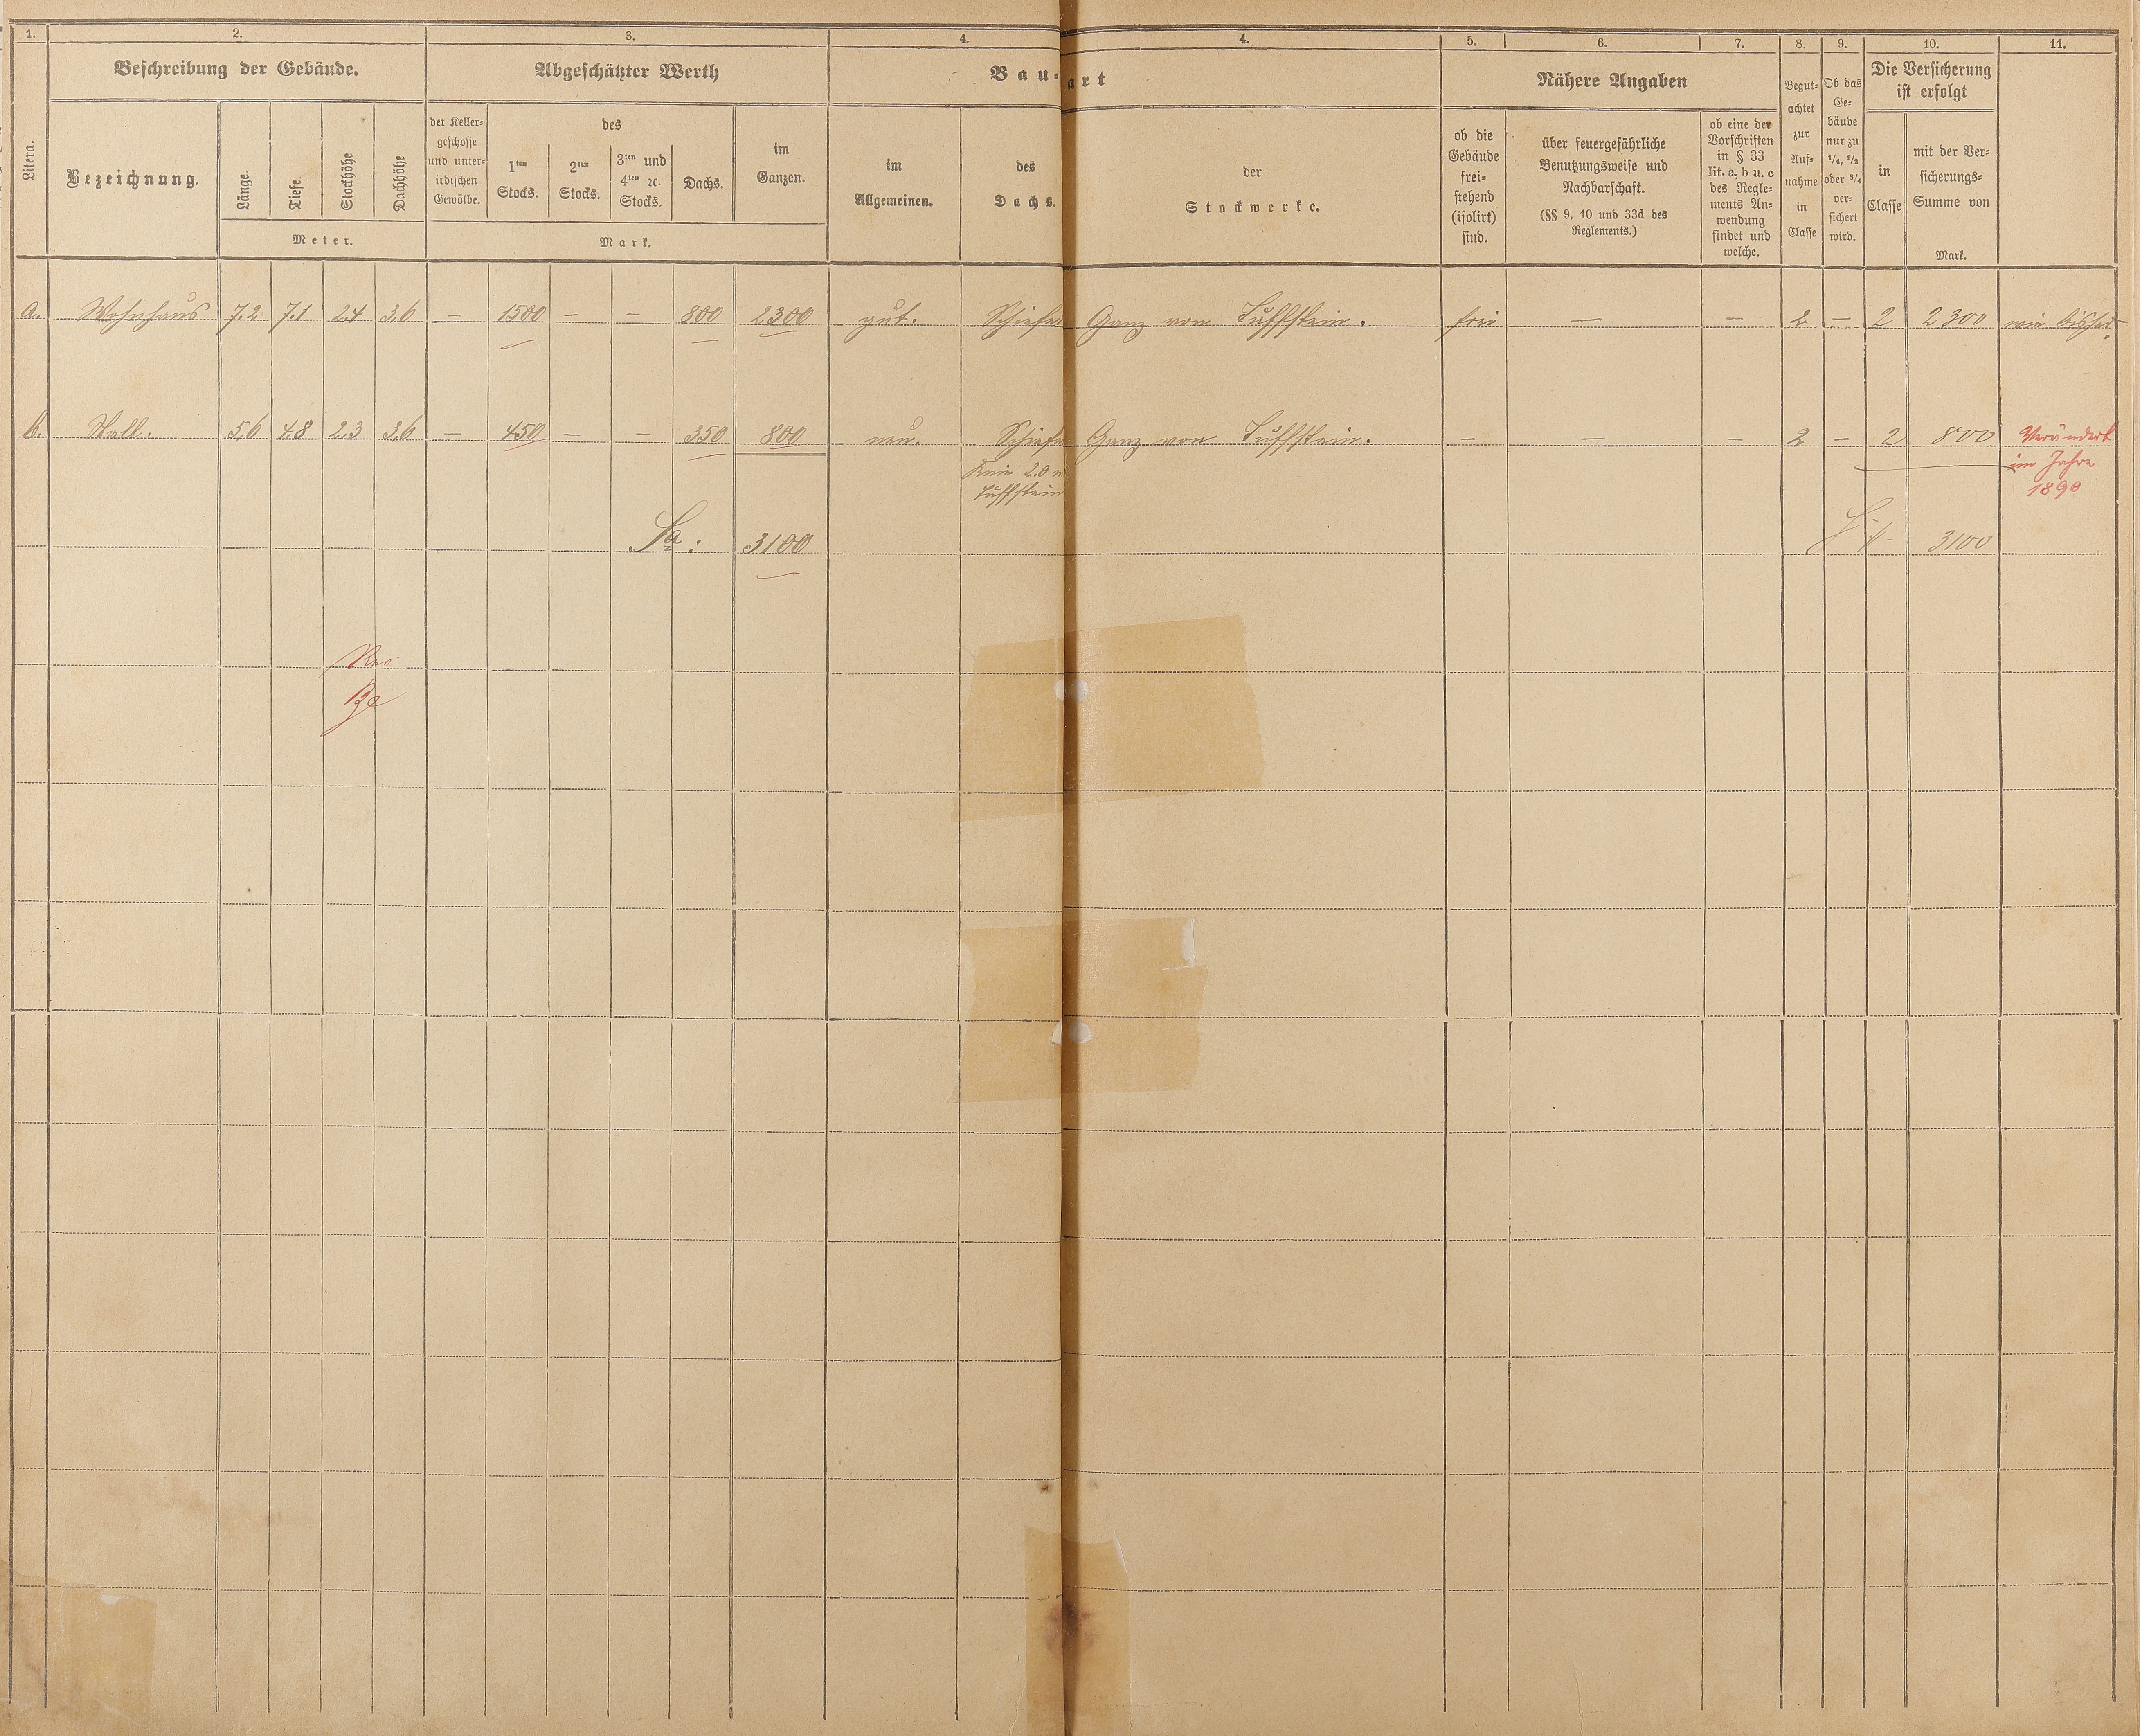 1. 2. 3. 4. 4. 5. 6. 7. 8. 9. 10. 11.
Litera.
Beschreibung der Gebäude.
Bezeichnung.
Länge
Tiefe
Stockhöhe
Dachhöhe
Meter.
Abgeschätzter Werth
der Keller-
geschosse
und unter-
irdischen
Gewölbe.
des
1ten
Stocks.
2ten
Stocks.
3ten und
4ten ec.
Stocks.
Dachs.
im
Ganzen.
Mark.
Bau-art
im
Allgemeinen.
des
Dachs.
der
Stockwerke.
Nähere Angaben
ob die
Gebäude
frei-
stehend
(isolirt)
sind.
über feuergefährliche
Benutzungsweise und
Nachbarschaft.
(§§ 9, 10 und 33d des
Reglements.)
ob eine der
Vorschriften
in § 33
lit. a, b u. c
des Regle-
ments An-
wendung
findet und
welche.
Begut-
achtet
zur
Auf-
nahme
in
Classe
Ob das
Ge-
bäude
nur zu
1/4, 1/2
oder 3/4
ver-
sichert
wird.
Die Versicherung
ist erfolgt
in
Classe
mit der Ver-
sicherungs-
Summe von
Mark.
a. Wohnhaus 7.2 7.1 2.4 3.6 — 1500 — — 800 2300 gut. Schiefer Ganz von Tuffstein. frei — — 2 — 2 2300 wie bisher
b. Stall. 5.6 4.8 2.3 3.6 — 450 — — 350 800 neu. Schiefer Ganz von Tuffstein. — — — 2 — 2 800 Verändert
im Jahre
1890
Knie 2.0 m
Tuffstein
Sa: 3100 3100
Rev